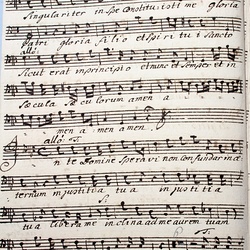 Singulariter in spe Constituisti me Gloria
patri gloria filio et spiritui Sancto
allo:
Sicut erat in principio et nunc et Semper et in
Sæcula Sæculorum amen a
men a men amen.
allo: T.
In te Domine Speravi non confundar in æ
ternum in justitia tua in justitia
S:
tua libera me inclina ad me aurem tuam
T.